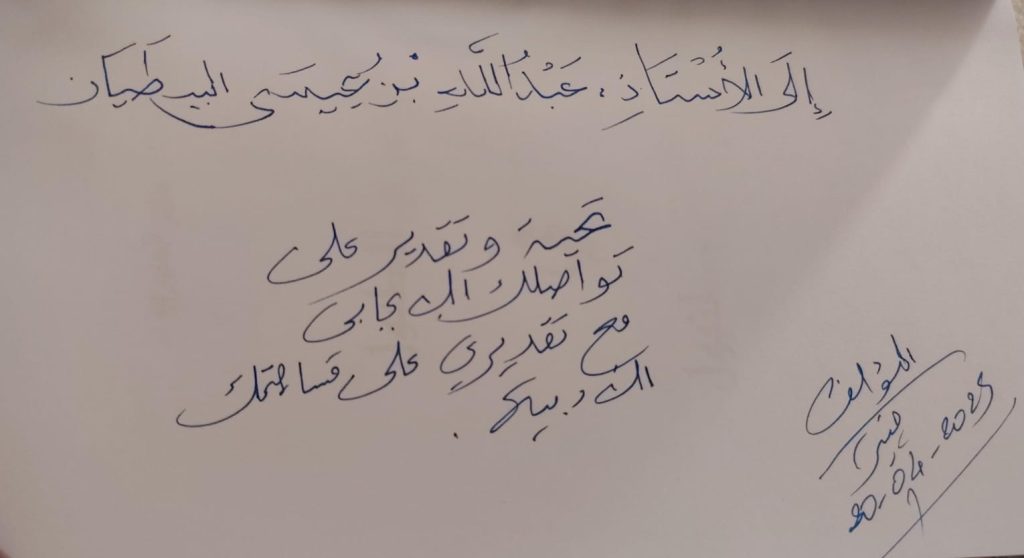 إِلَى الأُسْتَاذِ، عَبْدُ اللَّهِ بْن يُحْيِـسَى البيطَيان
تحية وتقدير على
تواصلك الإيجابي
مع تقديري على مساهمتك
الأدبية.
المؤلف
20-04-2025